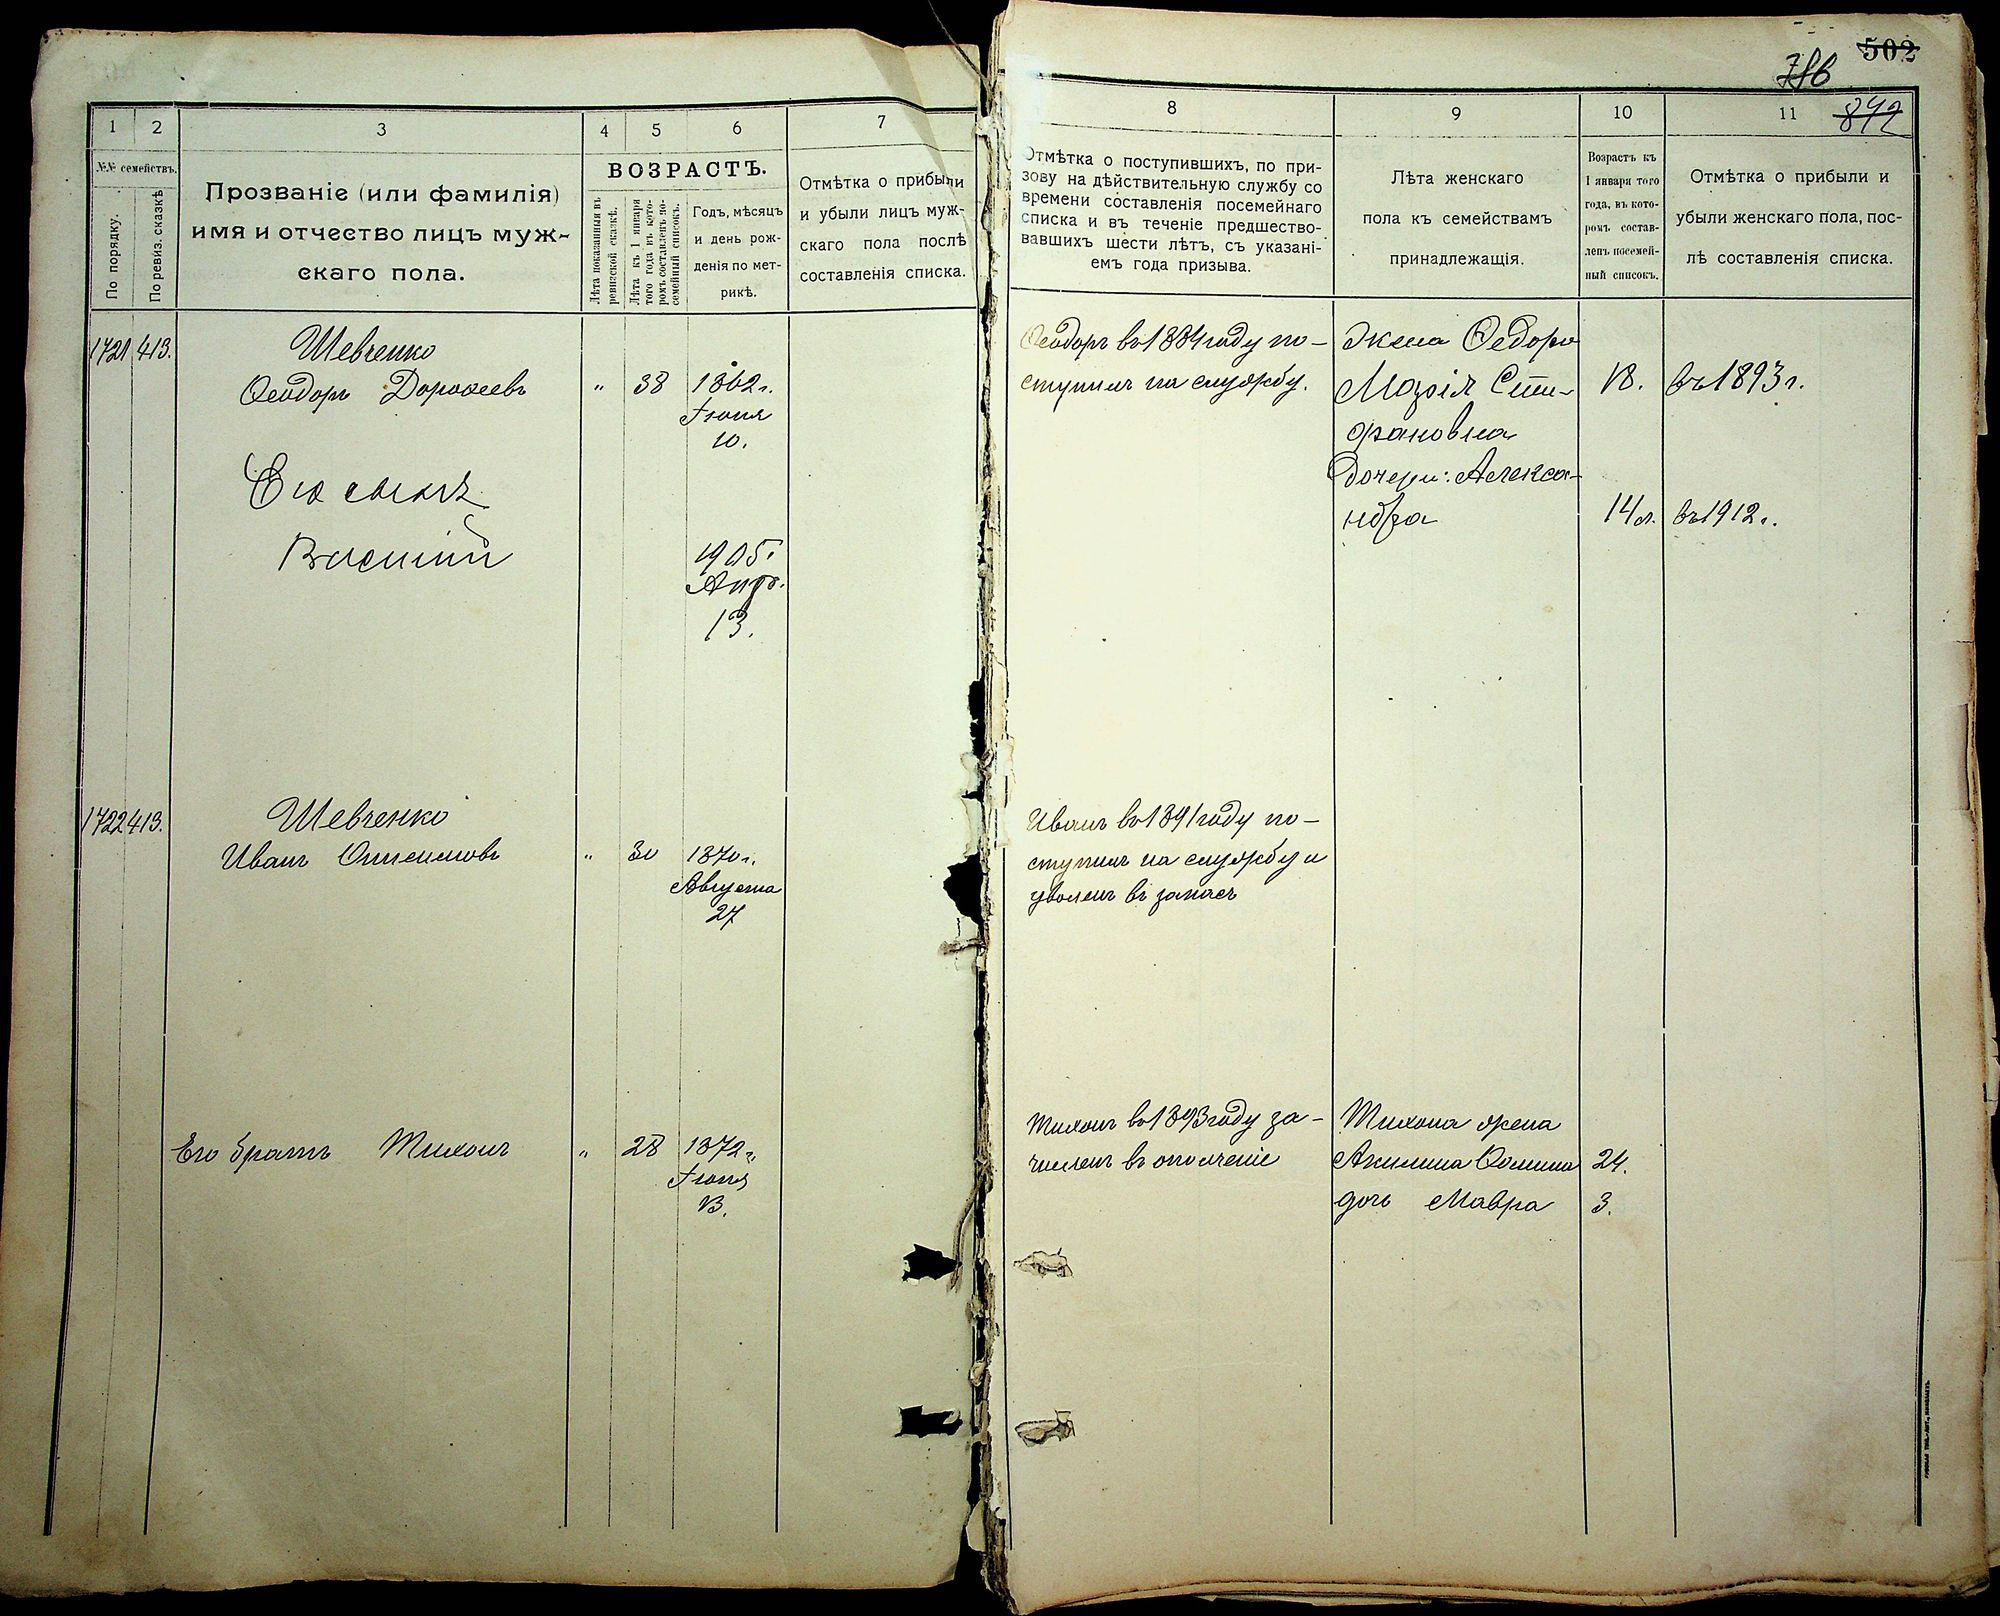 502
786
842
1
2
3
4
5
6
7
№№ семействъ.
По порядку.
По ревиз. сказкѣ
Прозваніе (или фамилія)
имя и отчество лицъ муж-
скаго пола.
ВОЗРАСТЪ.
Лѣта показанныя въ
ревизской сказкѣ.
Лѣта къ 1 января
того года въ кото-
ромъ составленъ по-
семейный списокъ.
Годъ, мѣсяцъ
и день рож-
денія по мет-
рикѣ.
Отмѣтка о прибыли
и убыли лицъ муж-
скаго пола послѣ
составленія списка.
8
9
10
11
Отмѣтка о поступившихъ, по при-
зову на дѣйствительную службу со
времени составленія посемейнаго
списка и въ теченіе предшество-
вавшихъ шести лѣтъ, съ указані-
емъ года призыва.
Лѣта женскаго
пола къ семействамъ
принадлежащія.
Возрастъ къ
1 января того
года, въ кото-
ромъ состав-
ленъ посемей-
ный списокъ.
Отмѣтка о прибыли и
убыли женскаго пола, пос-
лѣ составленія списка.
1721 413.
Шевченко
Ѳеодоръ Дороѳеевъ " 38 1862 г.
Іюня
10.
Его сынъ
Василій
1905.
Апр.
13.
Ѳеодоръ въ 1884 году по-
ступилъ на службу.
Жена Ѳедора
Марія Сте-
фановна
18. въ 1893 г.
Дочери: Алекса-
ндра
14 л. въ 1912 г.
1722 413.
Шевченко
Иванъ Онисимовъ " 30 1870 г.
Августа
27
Иванъ въ 1891 году по-
ступилъ на службу и
уволенъ въ запасъ
Его братъ Тихонъ " 28 1872 г.
Іюня
13.
Тихонъ въ 1893 году за-
численъ въ ополченіе
Тихона жена
Акилина Ѳомина 24.
дочь Мавра 3.